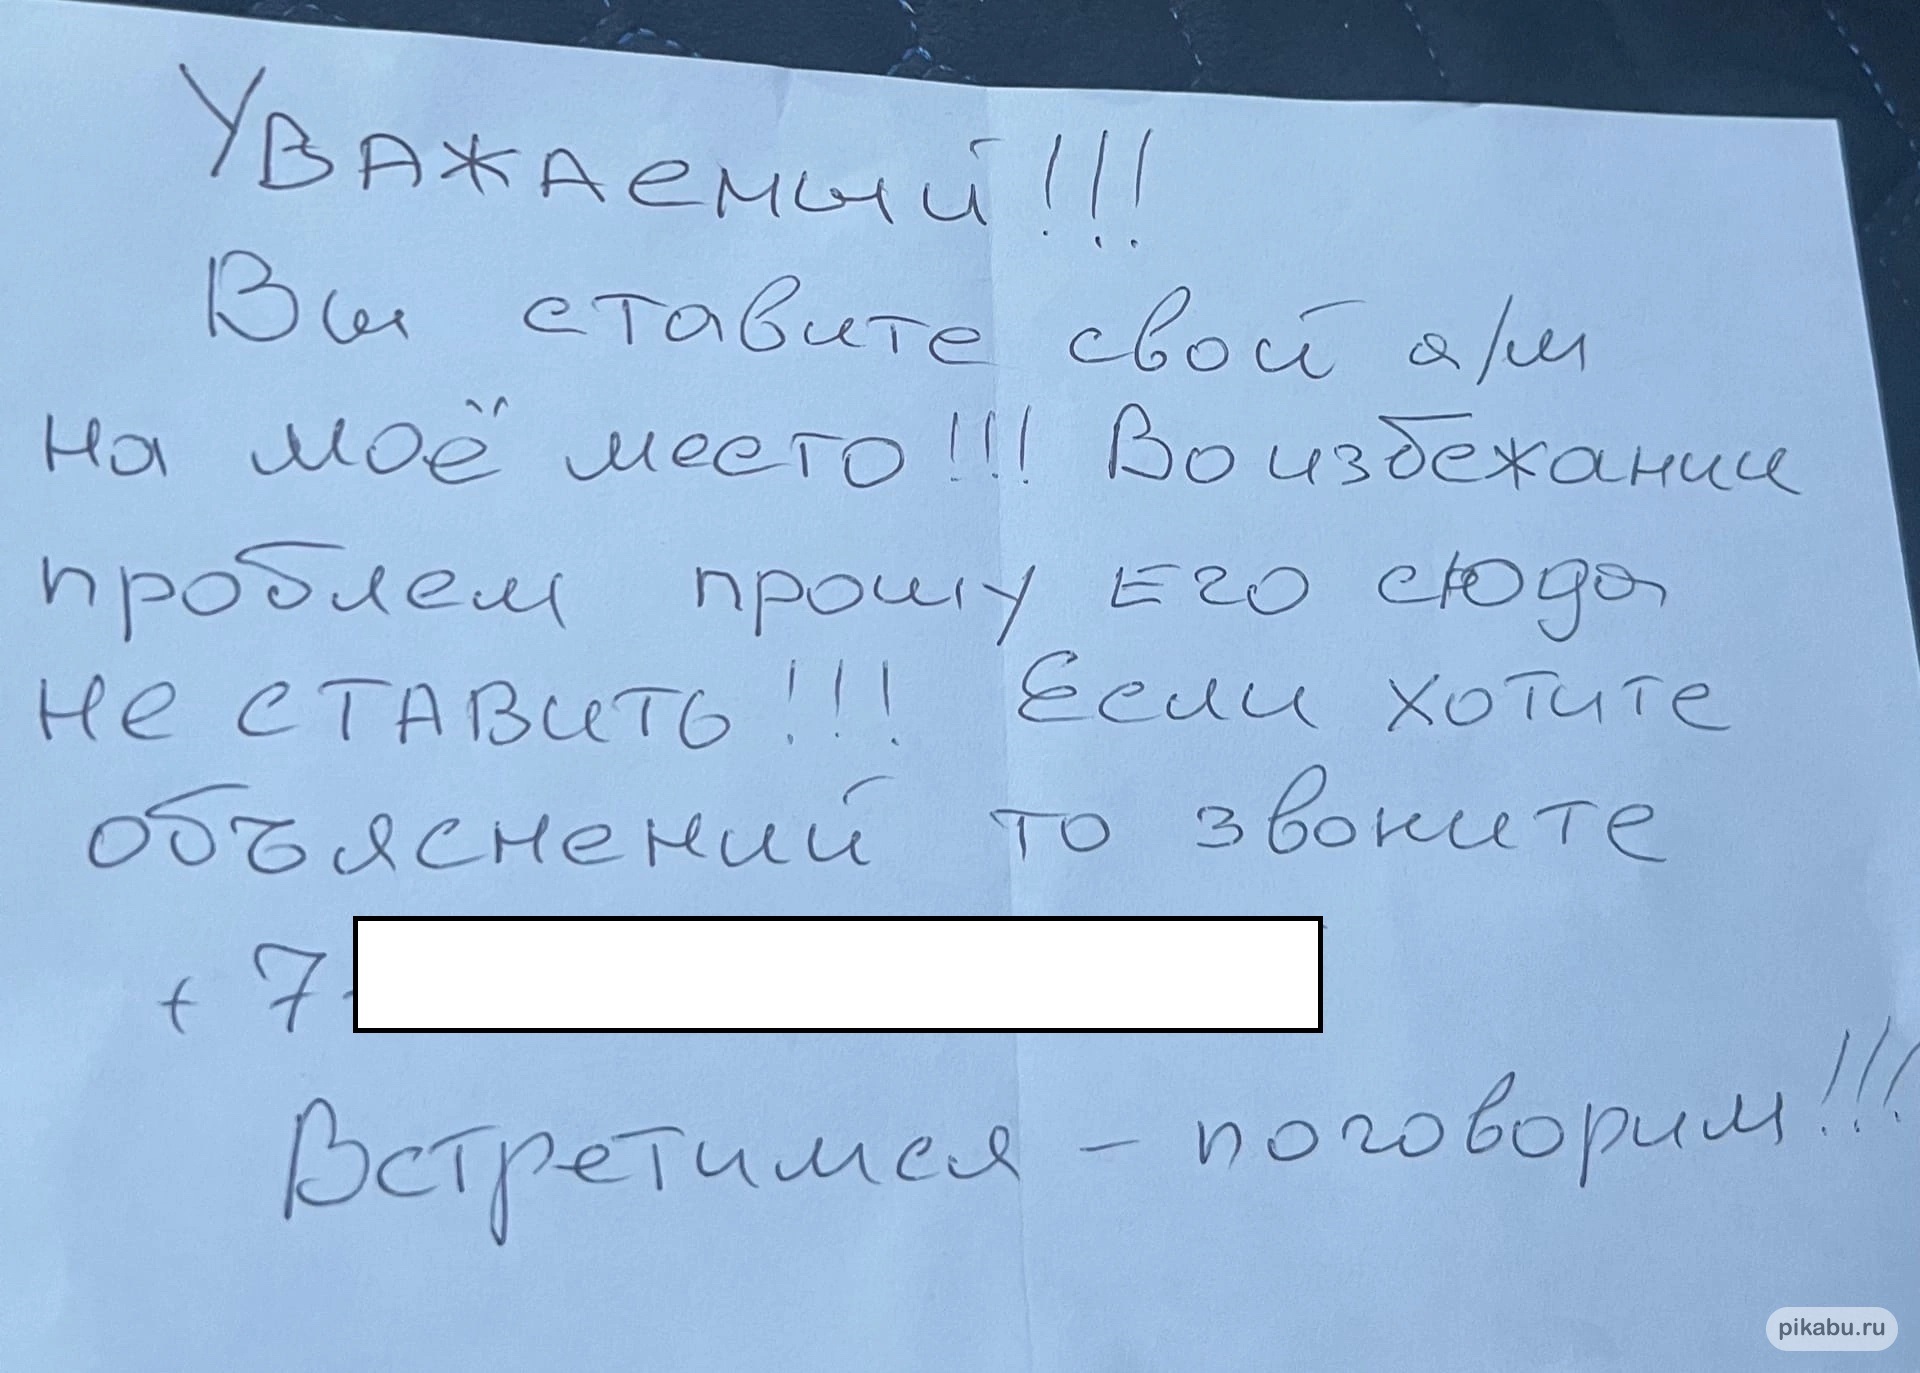 Уважаемый!!!
Вы ставите свой а/м
на моё место!!! Во избежании
проблем прошу Его сюда
не ставить!!! Если хотите
объяснений то звоните
+ 7
Встретимся - поговорим!!!
pikabu.ru